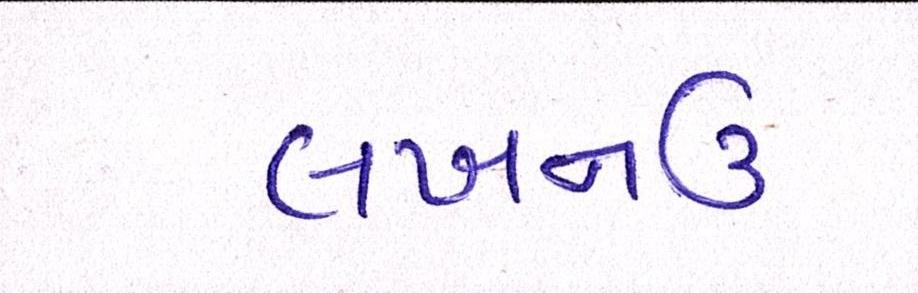 લખનઉ